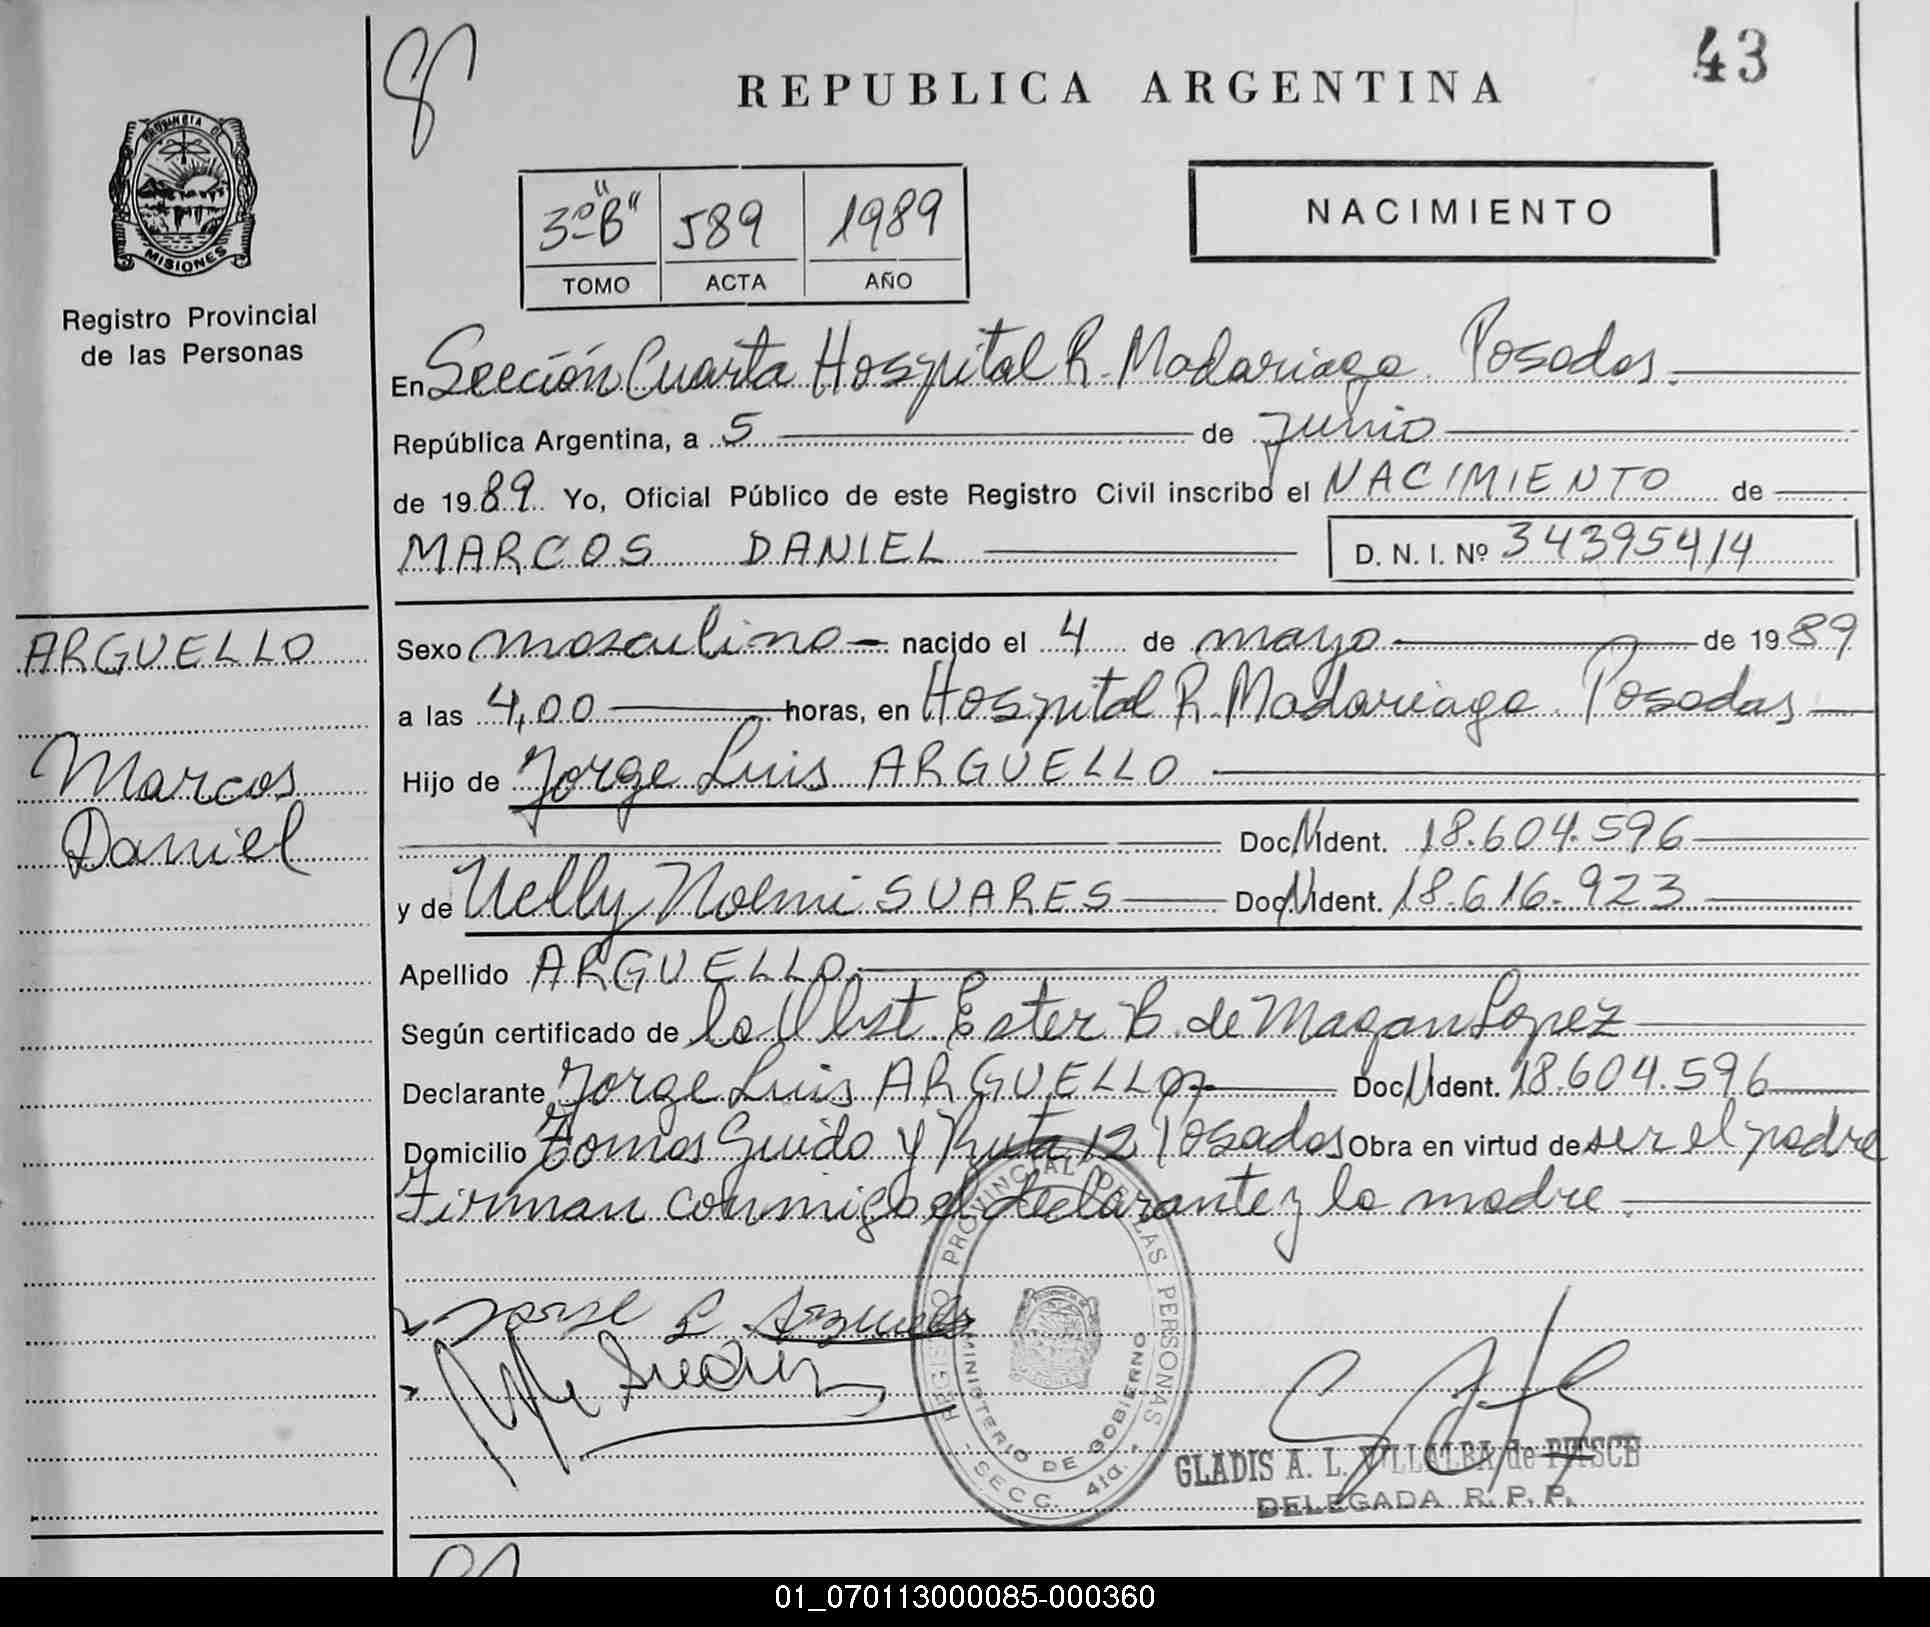 43
REPUBLICA ARGENTINA
PROVINCIA DE
MISIONES
Registro Provincial
de las Personas
3º "B" 589 1989
TOMO ACTA AÑO
NACIMIENTO
En Sección Cuarta Hospital R. Madariaga. Posadas.
República Argentina, a 5 de Junio
de 1989 Yo, Oficial Público de este Registro Civil inscribo el NACIMIENTO de
MARCOS DANIEL D. N. I. Nº 34395414
ARGUELLO
Marcos
Daniel
Sexo masculino nacido el 4 de mayo de 1989
a las 4,00 horas, en Hospital R. Madariaga. Posadas
Hijo de Jorge Luis ARGUELLO
Doc N Ident. 18.604.596
y de Nelly Noemi SUARES Doc N Ident. 18.616.923
Apellido ARGUELLO
Según certificado de la Obst. Ester B. de Magan Lopez
Declarante Jorge Luis ARGUELLO Doc N Ident. 18.604.596
Domicilio Tomas Guido y Ruta 12 Posadas Obra en virtud de ser el padre
Firman conmigo el declarante y la madre.
Jorge L Arguello
REGISTRO PROVINCIAL DE LAS PERSONAS
MINISTERIO DE GOBIERNO
- SECC. 4ta. -
GLADIS A. L. VILLALBA de
DELEGADA R. P. P.
01_070113000085-000360